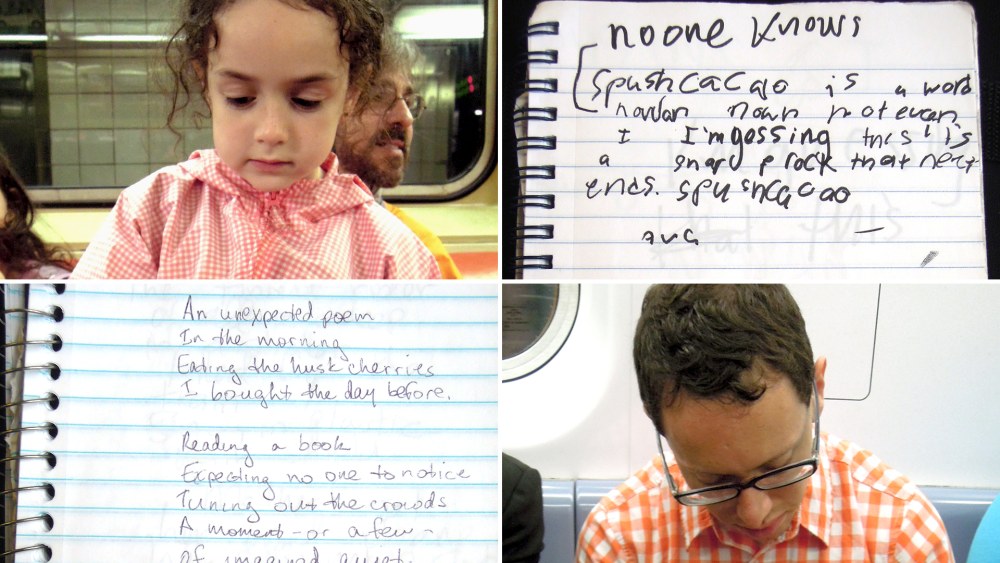 no one knows
Spushcacao is a word
I I'm gessing this is
a that
ends. spushcacao
An unexpected poem
In the morning
Eating the husk cherries
I bought the day before.
Reading a book
Expecting no one to notice
Tuning out the crowds
A moment - or a few -
Of imagined quiet.